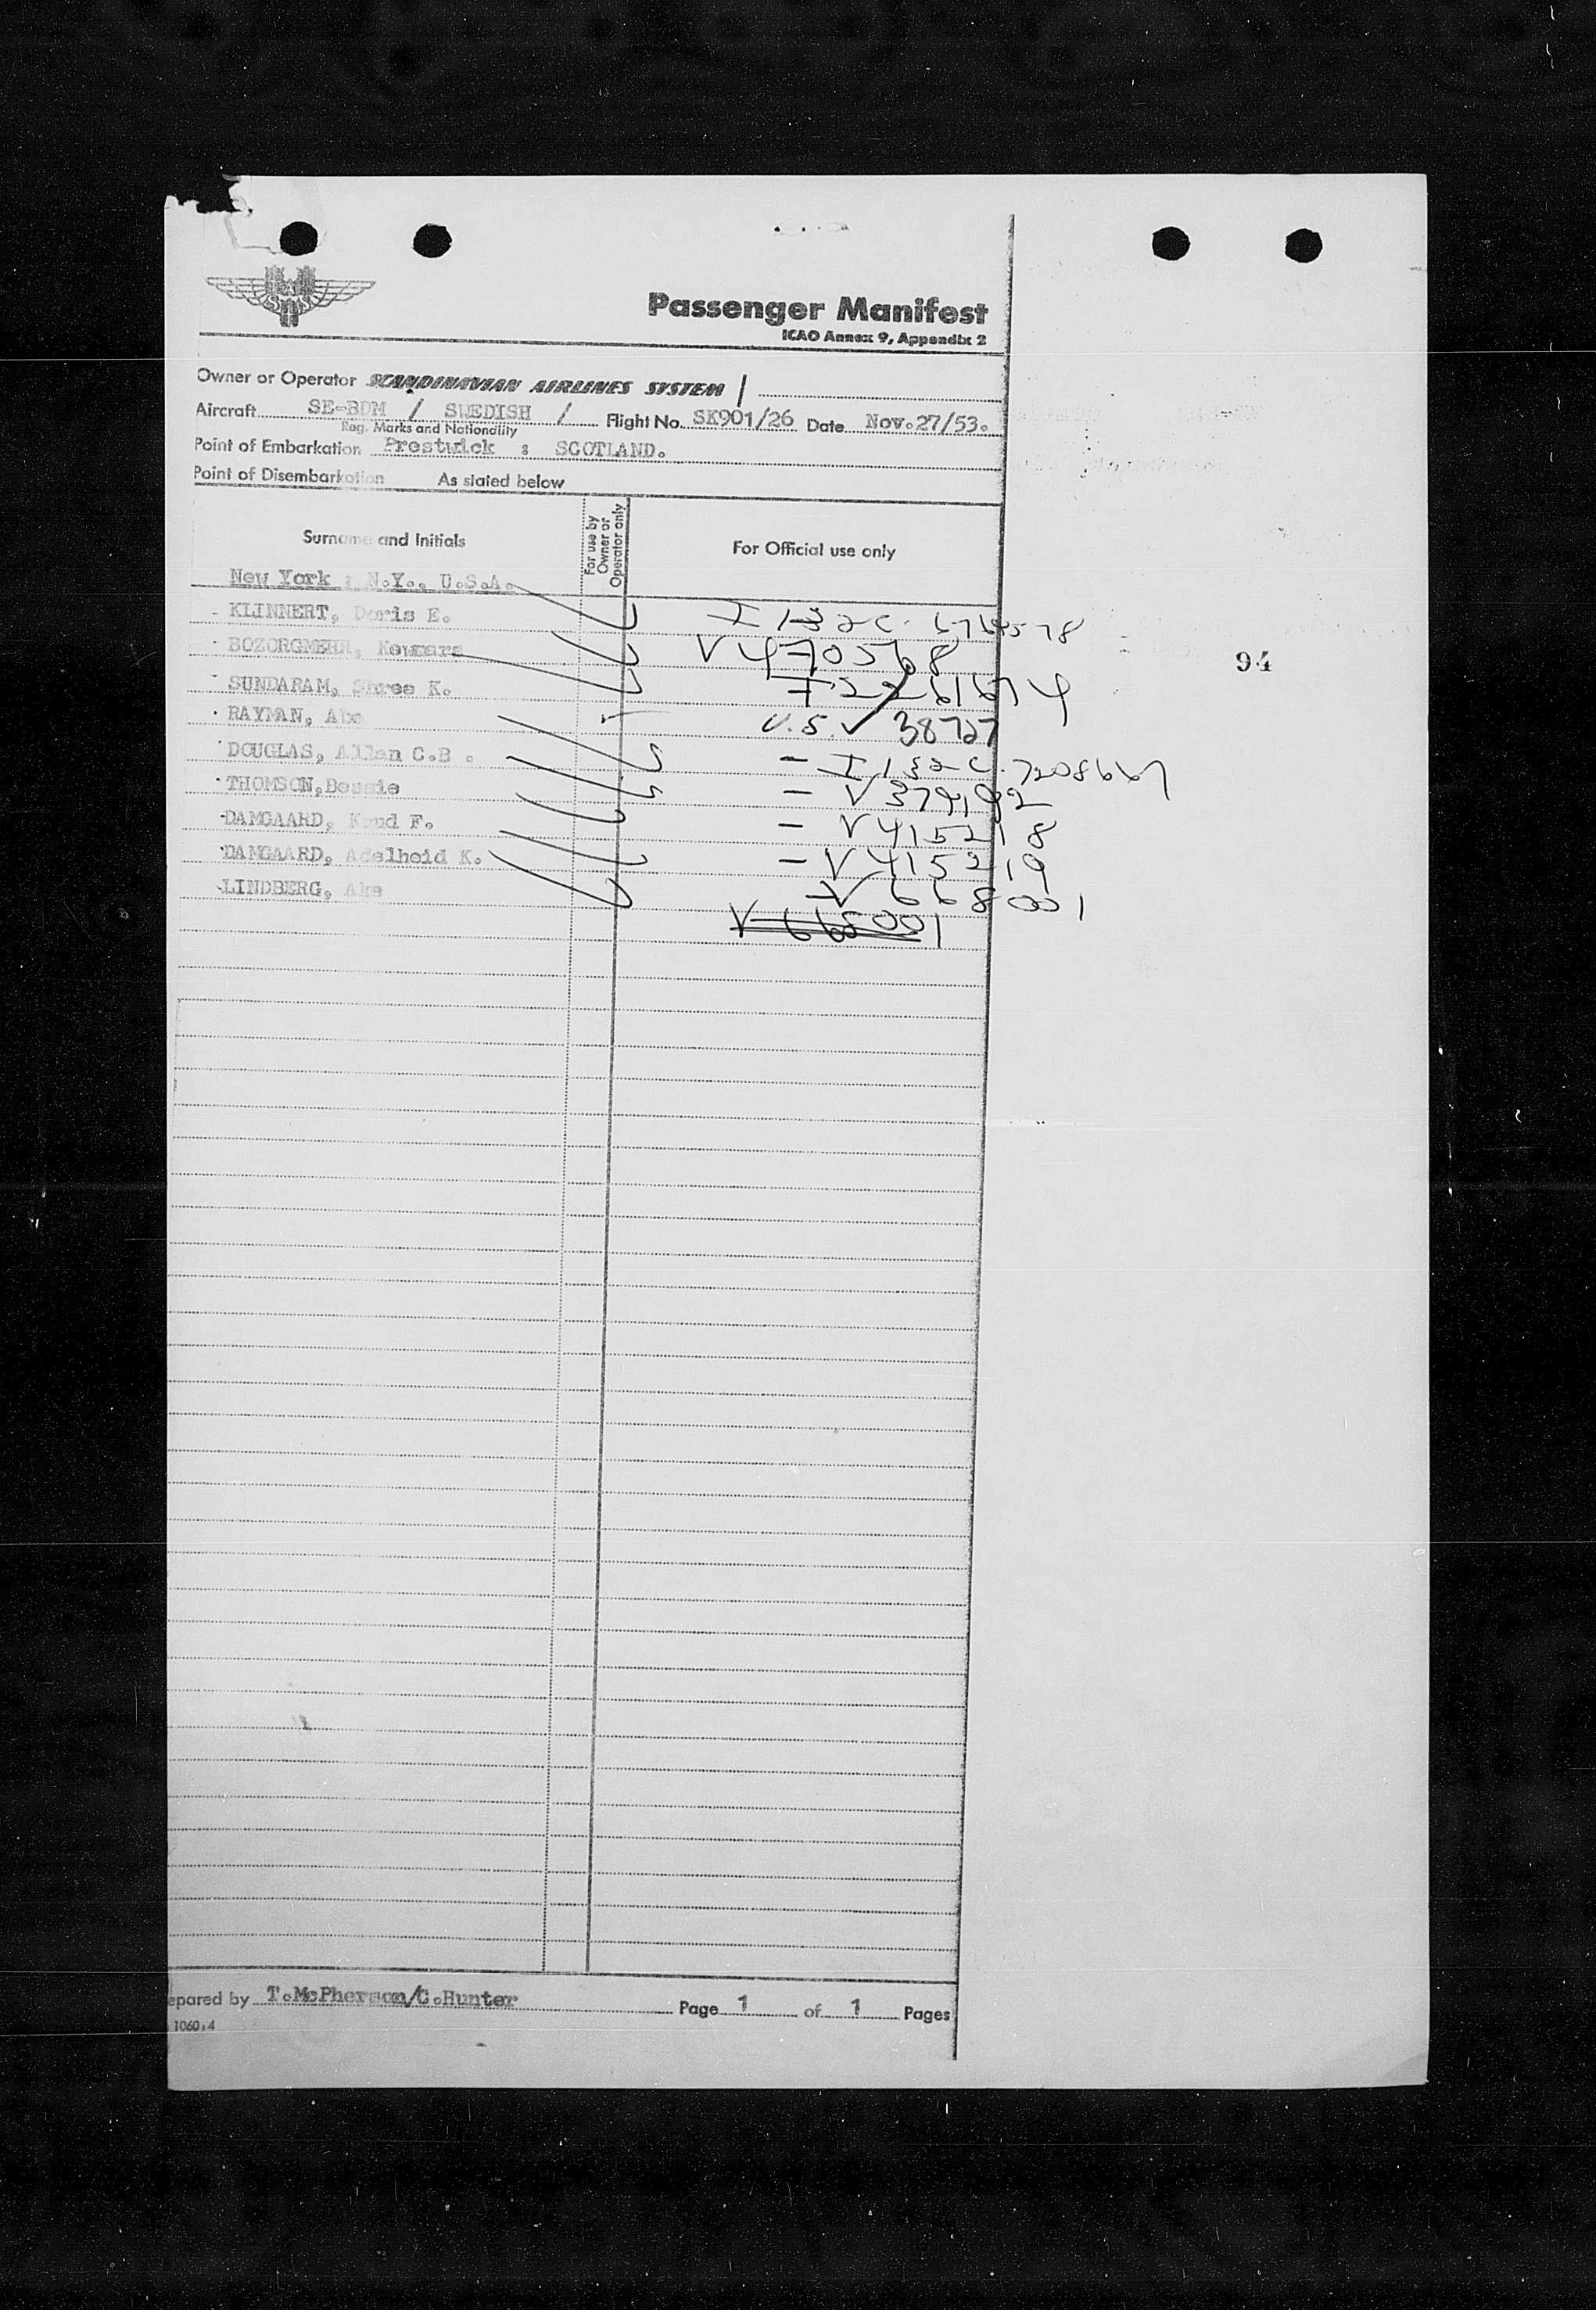 SAS
Passenger Manifest
ICAO Annex 9, Appendix 2
Owner or Operator SCANDINAVIAN AIRLINES SYSTEM
Aircraft SE-BDM / SWEDISH / Flight No. SK901/26 Date Nov.27/53.
Reg. Marks and Nationality
Point of Embarkation Prestwick : SCOTLAND.
Point of Disembarkation As stated below
Surname and Initials For use by Owner or Operator only For Official use only
New York : N.Y., U.S.A.
KLINNERT, Doris E. I 132C.
BOZORGMEHR, V 470568
SUNDARAM, Shree K.
RAYMAN, Abe U.S. V 38727
DOUGLAS, Allan C.B . - I 132C. 7208667
THOMSON,Bessie - V 379192
DAMGAARD, Knud F. - V 415218
DAMGAARD, Adelheid K. - V 415219
LINDBERG, Ake V 668001
V 668001
94
epared by T.McPherson/C.Hunter Page 1 of 1 Pages
1060:4